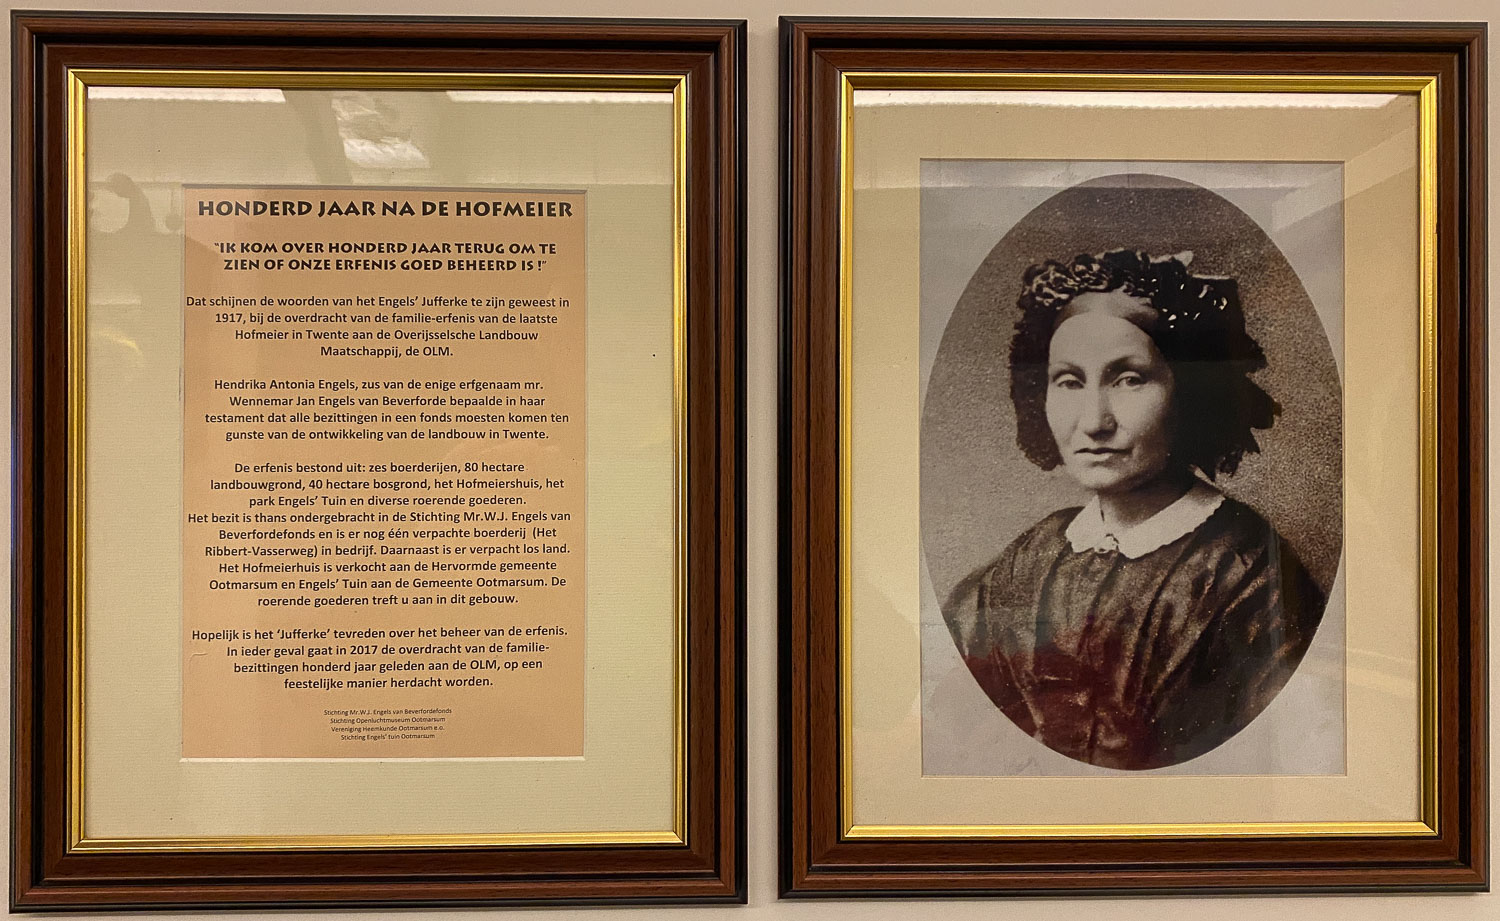 HONDERD JAAR NA DE HOFMEIER
"IK KOM OVER HONDERD JAAR TERUG OM TE
ZIEN OF ONZE ERFENIS GOED BEHEERD IS !"
Dat schijnen de woorden van het Engels' Jufferke te zijn geweest in
1917, bij de overdracht van de familie-erfenis van de laatste
Hofmeier in Twente aan de Overijsselsche Landbouw
Maatschappij, de OLM.
Hendrika Antonia Engels, zus van de enige erfgenaam mr.
Wennemar Jan Engels van Beverforde bepaalde in haar
testament dat alle bezittingen in een fonds moesten komen ten
gunste van de ontwikkeling van de landbouw in Twente.
De erfenis bestond uit: zes boerderijen, 80 hectare
landbouwgrond, 40 hectare bosgrond, het Hofmeiershuis, het
park Engels' Tuin en diverse roerende goederen.
Het bezit is thans ondergebracht in de Stichting Mr.W.J. Engels van
Beverfordefonds en is er nog één verpachte boerderij (Het
Ribbert-Vasserweg) in bedrijf. Daarnaast is er verpacht los land.
Het Hofmeierhuis is verkocht aan de Hervormde gemeente
Ootmarsum en Engels' Tuin aan de Gemeente Ootmarsum. De
roerende goederen treft u aan in dit gebouw.
Hopelijk is het 'Jufferke' tevreden over het beheer van de erfenis.
In ieder geval gaat in 2017 de overdracht van de familie-
bezittingen honderd jaar geleden aan de OLM, op een
feestelijke manier herdacht worden.
Stichting Mr.W.J. Engels van Beverfordefonds
Stichting Openluchtmuseum Ootmarsum
Vereniging Heemkunde Ootmarsum e.o.
Stichting Engels' tuin Ootmarsum